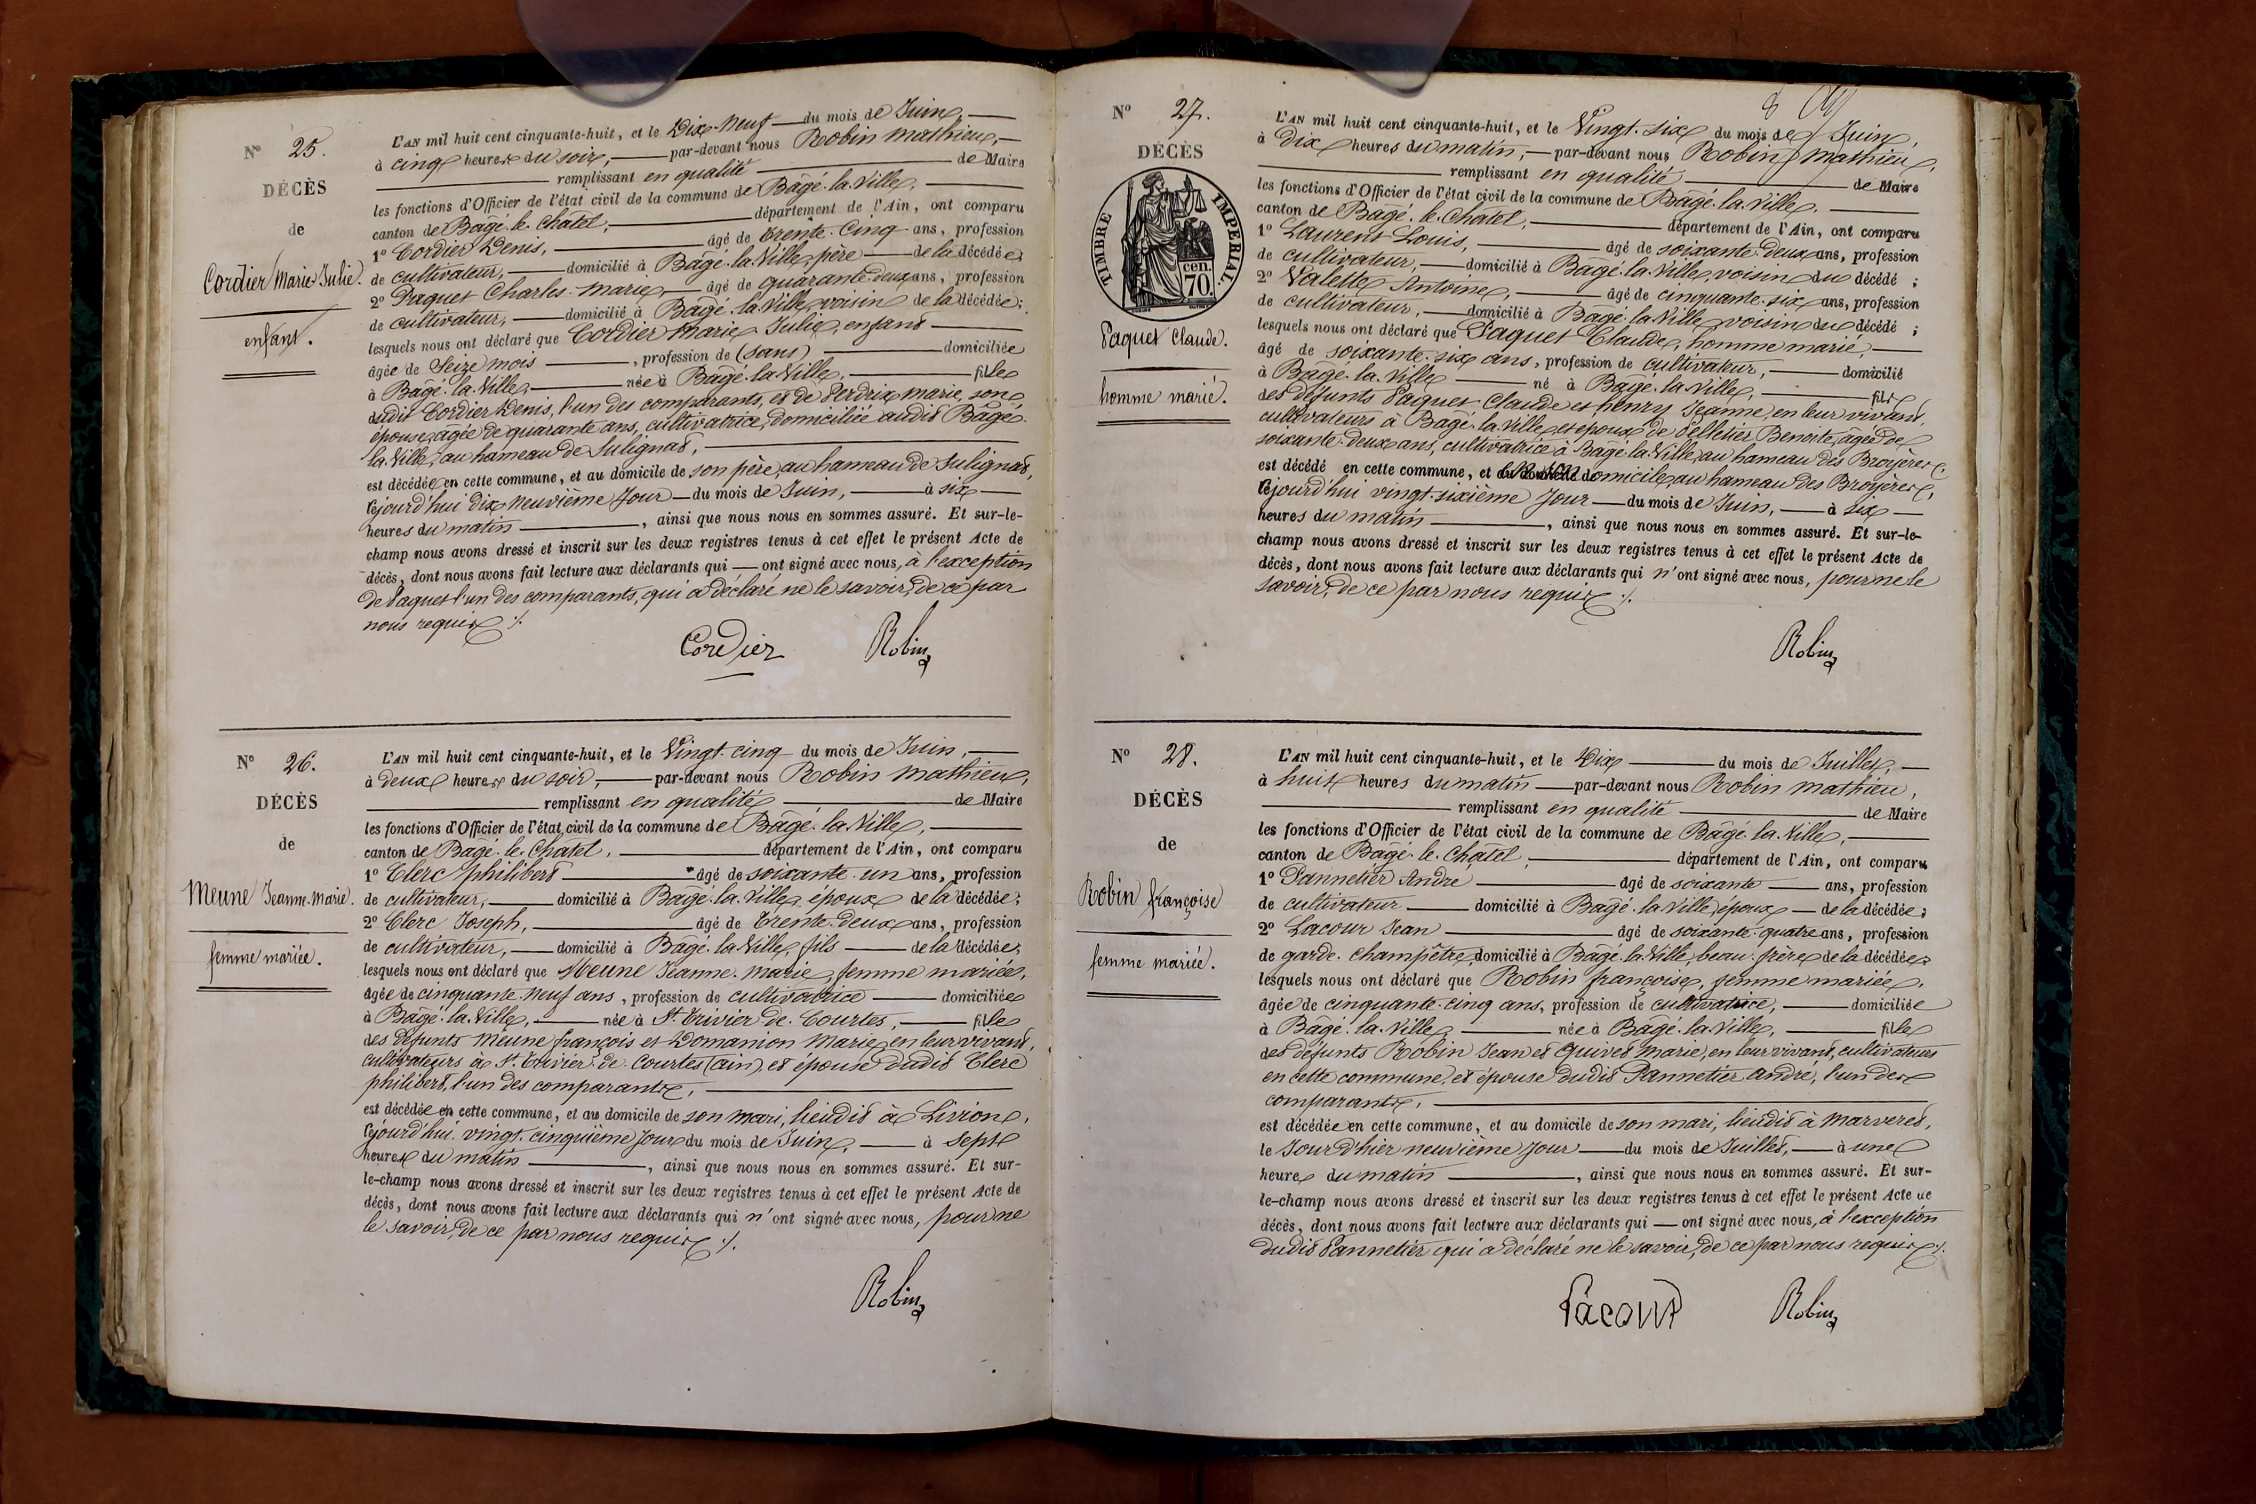 N° 25.
DÉCÈS
de
Cordier Marie Julie.
enfant.
L'AN mil huit cent cinquante-huit, et le Dix-Neuf du mois de Juin,
à cinq heures du soir, par-devant nous Robin Mathieu,
remplissant en qualité de Maire
les fonctions d'Officier de l'état civil de la commune de Bâgé-la-Ville,
canton de Bâgé-le-Châtel, département de l'Ain, ont comparu
1° Cordier Denis, âgé de trente-cinq ans, profession
de cultivateur, domicilié à Bâgé-la-Ville, père de la décédée
2° Paquet Charles-Marie, âgé de quarante deux ans, profession
de cultivateur, domicilié à Bâgé-la-Ville, voisin de la décédée;
lesquels nous ont déclaré que Cordier Marie Julie, enfant
âgée de Seize mois, profession de (sans) domiciliée
à Bâgé-la-Ville, née à Bâgé-la-Ville, fille
dudit Cordier Denis, l'un des comparants, et de Perdrix Marie, son
épouse, âgée de quarante ans, cultivatrice, domiciliée audit Bâgé-
la-Ville, au hameau de Sulignat,
est décédée en cette commune, et au domicile de son père, au hameau de Sulignat,
cejourd'hui dix neuvième jour du mois de Juin, à six
heures du matin, ainsi que nous nous en sommes assuré. Et sur-le-
champ nous avons dressé et inscrit sur les deux registres tenus à cet effet le présent Acte de
décès, dont nous avons fait lecture aux déclarants qui ont signé avec nous, à l'exception
de Paquet l'un des comparants, qui a déclaré ne le savoir, de ce par
nous requis ./.
Cordier Robin
N° 26.
DÉCÈS
de
Meune Jeanne-Marie.
femme mariée.
L'AN mil huit cent cinquante-huit, et le Vingt-cinq du mois de Juin,
à deux heures du soir, par-devant nous Robin Mathieu,
remplissant en qualité de Maire
les fonctions d'Officier de l'état civil de la commune de Bâgé-la-Ville,
canton de Bâgé-le-Châtel, département de l'Ain, ont comparu
1° Clerc Philibert âgé de soixante-un ans, profession
de cultivateur, domicilié à Bâgé-la-Ville, époux de la décédée;
2° Clerc Joseph, âgé de trente-deux ans, profession
de cultivateur, domicilié à Bâgé-la-Ville, fils de la décédée,
lesquels nous ont déclaré que Meune Jeanne-Marie, femme mariée,
âgée de cinquante-neuf ans, profession de cultivatrice domiciliée
à Bâgé-la-Ville, née à St. Trivier-de-Courtes, fille
des défunts Meune françois et Domanion Marie, en leur vivant,
cultivateurs à St. Trivier-de-Courtes (ain) et épouse dudit Clerc
philibert, l'un des comparants,
est décédée en cette commune, et au domicile de son mari, lieudit à Livion,
cejourd'hui vingt-cinquième Jour du mois de Juin, à sept
heures du matin, ainsi que nous nous en sommes assuré. Et sur-
le-champ nous avons dressé et inscrit sur les deux registres tenus à cet effet le présent Acte de
décès, dont nous avons fait lecture aux déclarants qui n'ont signé avec nous, pour ne
le savoir, de ce par nous requis ./.
Robin
8
N° 27.
DÉCÈS
TIMBRE IMPERIAL.
70 cen.
Paquet Claude.
homme marié.
L'AN mil huit cent cinquante-huit, et le Vingt-six du mois de Juin,
à Dix heures du matin, par-devant nous Robin Mathieu,
remplissant en qualité de Maire
les fonctions d'Officier de l'état civil de la commune de Bâgé-la-Ville,
canton de Bâgé-le-Châtel, département de l'Ain, ont comparu
1° Laurent Louis, âgé de soixante-deux ans, profession
de cultivateur, domicilié à Bâgé-la-Ville, voisin du décédé;
2° Valette Antoine, âgé de cinquante-six ans, profession
de cultivateur, domicilié à Bâgé-la-Ville voisin du décédé;
lesquels nous ont déclaré que Paquet Claude, homme marié,
âgé de soixante-six ans, profession de cultivateur, domicilié
à Bâgé-la-Ville né à Bâgé-la-Ville, fils
des défunts Paquet Claude et henry Jeanne, en leur vivant,
cultivateurs à Bâgé-la-Ville, et époux de Pelletier Benoite, âgée de
soixante-deux ans, cultivatrice à Bâgé-la-Ville, au hameau des Broyères,
est décédé en cette commune, et domicile, au hameau des Broyères,
cejourd'hui vingt-sixième Jour du mois de Juin, à six
heures du matin, ainsi que nous nous en sommes assuré. Et sur-le-
champ nous avons dressé et inscrit sur les deux registres tenus à cet effet le présent Acte de
décès, dont nous avons fait lecture aux déclarants qui n'ont signé avec nous, pour ne le
savoir, de ce par nous requis ./.
Robin
N° 28.
DÉCÈS
de
Robin françoise
femme mariée.
L'AN mil huit cent cinquante-huit, et le Dix du mois de Juillet,
à huit heures du matin par-devant nous Robin Mathieu,
remplissant en qualité de Maire
les fonctions d'Officier de l'état civil de la commune de Bâgé-la-Ville,
canton de Bâgé-le-Châtel, département de l'Ain, ont comparu
1° Pannetier André âgé de soixante ans, profession
de cultivateur domicilié à Bâgé-la-Ville, époux de la décédée;
2° Lacour Jean âgé de soixante-quatre ans, profession
de garde-champêtre, domicilié à Bâgé-la-Ville, beau-frère de la décédée;
lesquels nous ont déclaré que Robin françoise, femme mariée,
âgée de cinquante-cinq ans, profession de cultivatrice, domiciliée
à Bâgé-la-Ville, née à Bâgé-la-Ville, fille
des défunts Robin Jean et Quivet Marie, en leur vivant, cultivateurs
en cette commune, et épouse dudit Pannetier André, l'un des
comparants,
est décédée en cette commune, et au domicile de son mari, lieudit à Marveret,
le Jour d'hier neuvième Jour du mois de Juillet, à une
heure du matin, ainsi que nous nous en sommes assuré. Et sur-
le-champ nous avons dressé et inscrit sur les deux registres tenus à cet effet le présent Acte de
décès, dont nous avons fait lecture aux déclarants qui ont signé avec nous, à l'exception
dudit Pannetier qui a déclaré ne le savoir, de ce par nous requis ./.
Lacour Robin